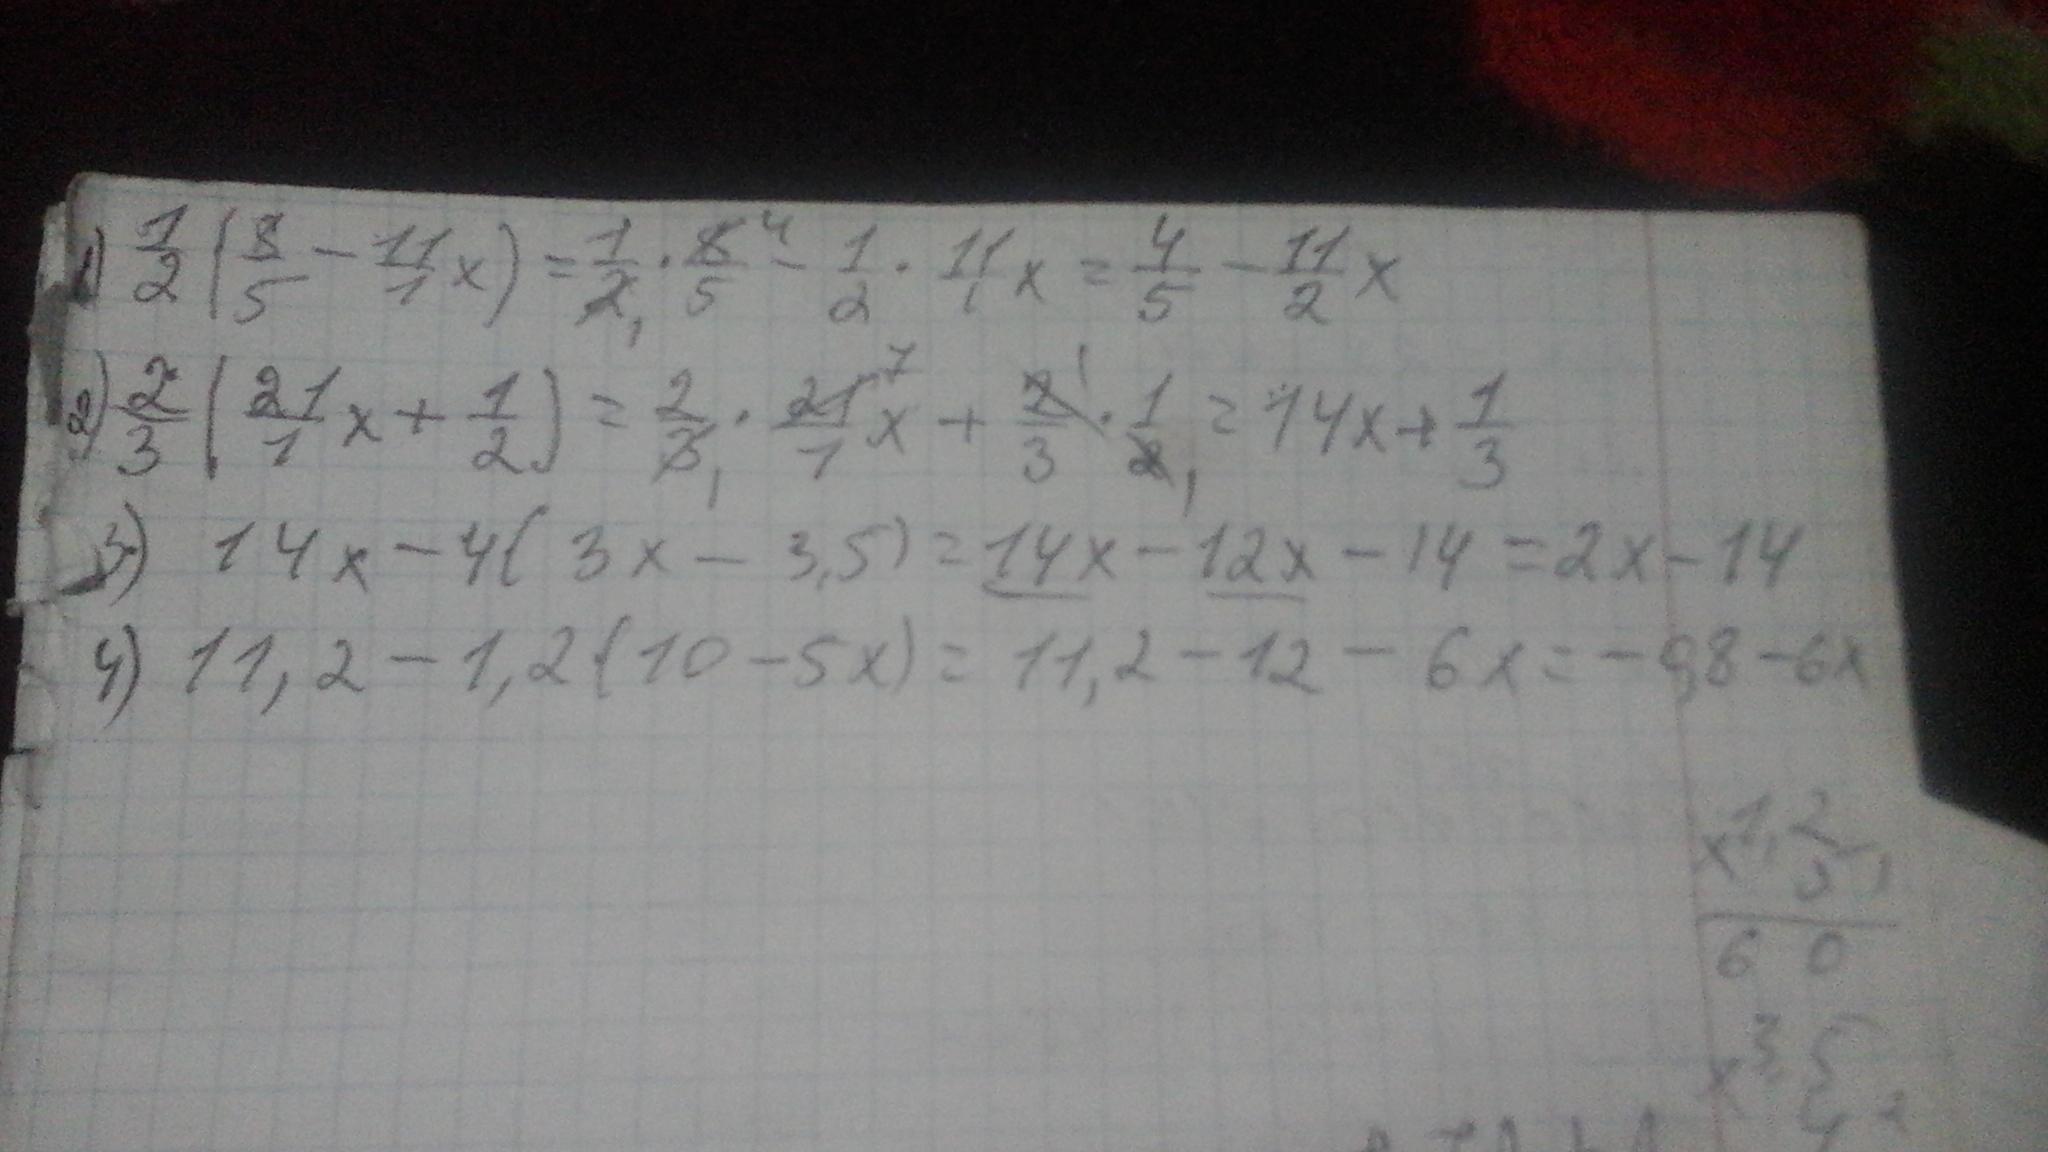 1) 1/2 (8/5 - 11/1 x) = 1/2 1 · 8 4/5 - 1/2 · 11/1 x = 4/5 - 11/2 x
2) 2/3 (21/1 x + 1/2) = 2/3 1 · 21 7/1 x + 2 1/3 · 1/2 1 = 14x + 1/3
3) 14x - 4(3x - 3,5) = 14x - 12x - 14 = 2x - 14
4) 11,2 - 1,2(10 - 5x) = 11,2 - 12 - 6x = -0,8 - 6x
x 1,2
5
6 0
x 3,5
4